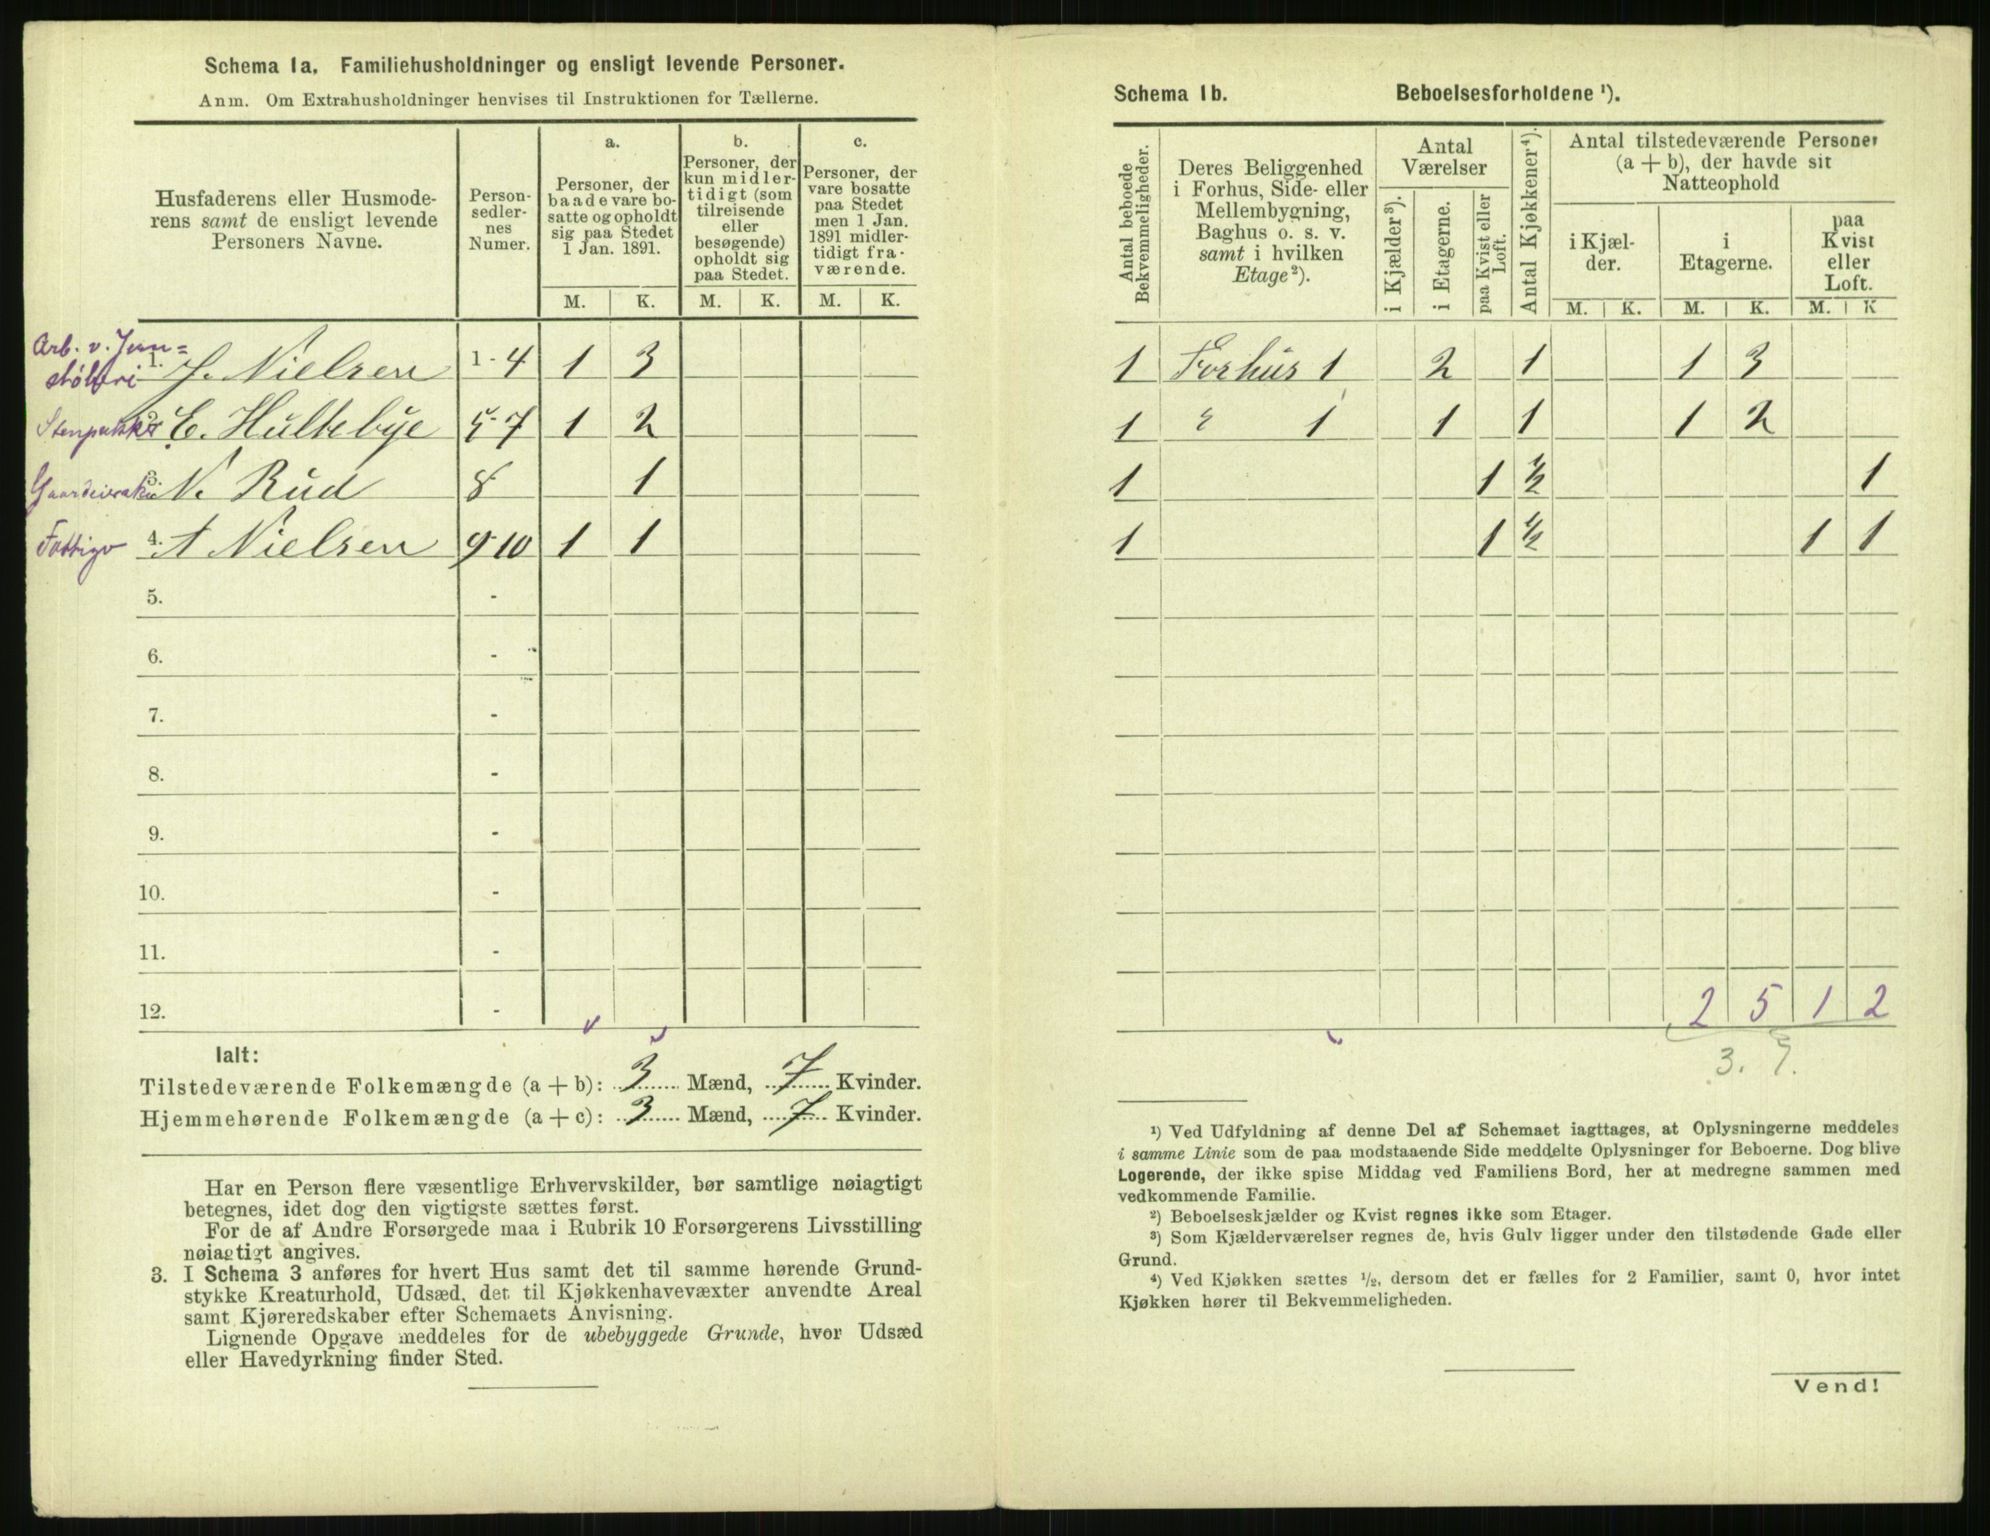 Schema 1a. Familiehusholdninger og ensligt levende Personer.
Anm. Om Extrahusholdninger henvises til Instruktionen for Tællerne.
Husfaderens eller Husmode-
rens samt de ensligt levende
Personers Navne.
Person-
sedler-
nes
Numer.
a.
Personer, der
baade vare bo-
satte og opholdt
sig paa Stedet
1 Jan. 1891.
b.
Personer, der
kun midler-
tidigt (som
tilreisende
eller
besøgende)
opholdt sig
paa Stedet.
c.
Personer, der
vare bosatte
paa Stedet
men 1 Jan.
1891 midler-
tidigt fra-
værende.
M. K. M. K. M. K.
Arb. v. Jern=
støberi 1. J. Nielsen 1-4 1 3
2. E. Hultebye 5-7 1 2
3. N. Rud 8 1
Fattigv 4. A Nielsen 9-10 1 1
5. -
6. -
7. -
8. -
9. -
10. -
11. -
12. -
Ialt:
Tilstedeværende Folkemængde (a + b): 3 Mænd, 7 Kvinder.
Hjemmehørende Folkemængde (a + c): 3 Mænd, 7 Kvinder.
Har en Person flere væsentlige Erhvervskilder, bør samtlige nøiagtigt
betegnes, idet dog den vigtigste sættes først.
For de af Andre Forsørgede maa i Rubrik 10 Forsørgerens Livsstilling
nøiagtigt angives.
3. I Schema 3 anføres for hvert Hus samt det til samme hørende Grund-
stykke Kreaturhold, Udsæd, det til Kjøkkenhavevæxter anvendte Areal
samt Kjøreredskaber efter Schemaets Anvisning.
Lignende Opgave meddeles for de ubebyggede Grunde, hvor Udsæd
eller Havedyrkning finder Sted.
Schema 1b. Beboelsesforholdene ¹).
Antal beboede
Bekvemmeligheder.
Deres Beliggenhed
i Forhus, Side- eller
Mellembygning,
Baghus o. s. v.
samt i hvilken
Etage²).
Antal
Værelser
i Kjælder³).
i Etagerne.
paa Kvist eller
Loft.
Antal Kjøkkener⁴).
Antal tilstedeværende Personer
(a + b), der havde sit
Natteophold
i Kjæl-
der.
i
Etagerne.
paa
Kvist
eller
Loft.
M. K. M. K. M. K
1 Forhus 1 2 1 1 3
1 " 1 1 1 1 2
1 1 ½ 1
1 1 ½ 1 1
2 5 1 2
3. 7.
¹) Ved Udfyldning af denne Del af Schemaet iagttages, at Oplysningerne meddeles
i samme Linie som de paa modstaaende Side meddelte Oplysninger for Beboerne. Dog blive
Logerende, der ikke spise Middag ved Familiens Bord, her at medregne sammen med
vedkommende Familie.
²) Beboelseskjælder og Kvist regnes ikke som Etager.
³) Som Kjælderværelser regnes de, hvis Gulv ligger under den tilstødende Gade eller
Grund.
⁴) Ved Kjøkken sættes ½, dersom det er fælles for 2 Familier, samt 0, hvor intet
Kjøkken hører til Bekvemmeligheden.
Vend!